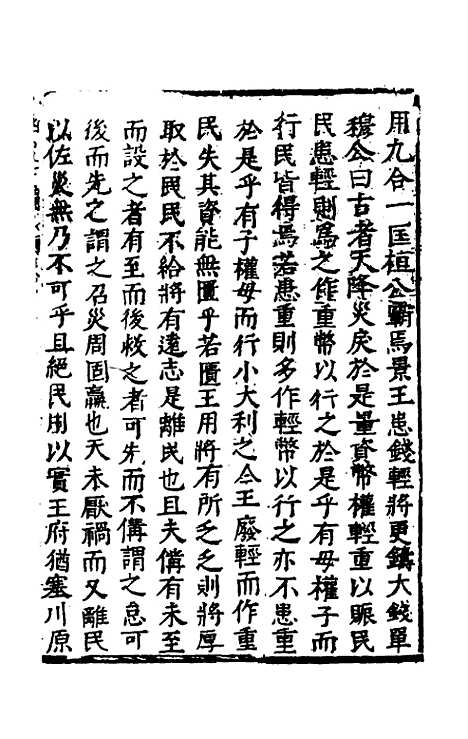 用九合一匡桓公霸焉景王患錢輕將更鑄大錢單
穆公曰古者天降災戾於是量資幣權輕重以賑民
民患輕則爲之作重幣以行之於是乎有母權子而
行民皆得焉若患重則多作輕幣以行之亦不患重
於是乎有子權母而行小大利之今王廢輕而作重
民失其資能無匱乎若匱王用將有所乏乏則將厚
取於民民不給將有遠志是離民也且夫備有未至
而設之者有至而後救之者可先而不備謂之怠可
後而先之謂之召災周固羸也天未厭禍而又離民
以佐災無乃不可乎且絕民用以實王府猶塞川原